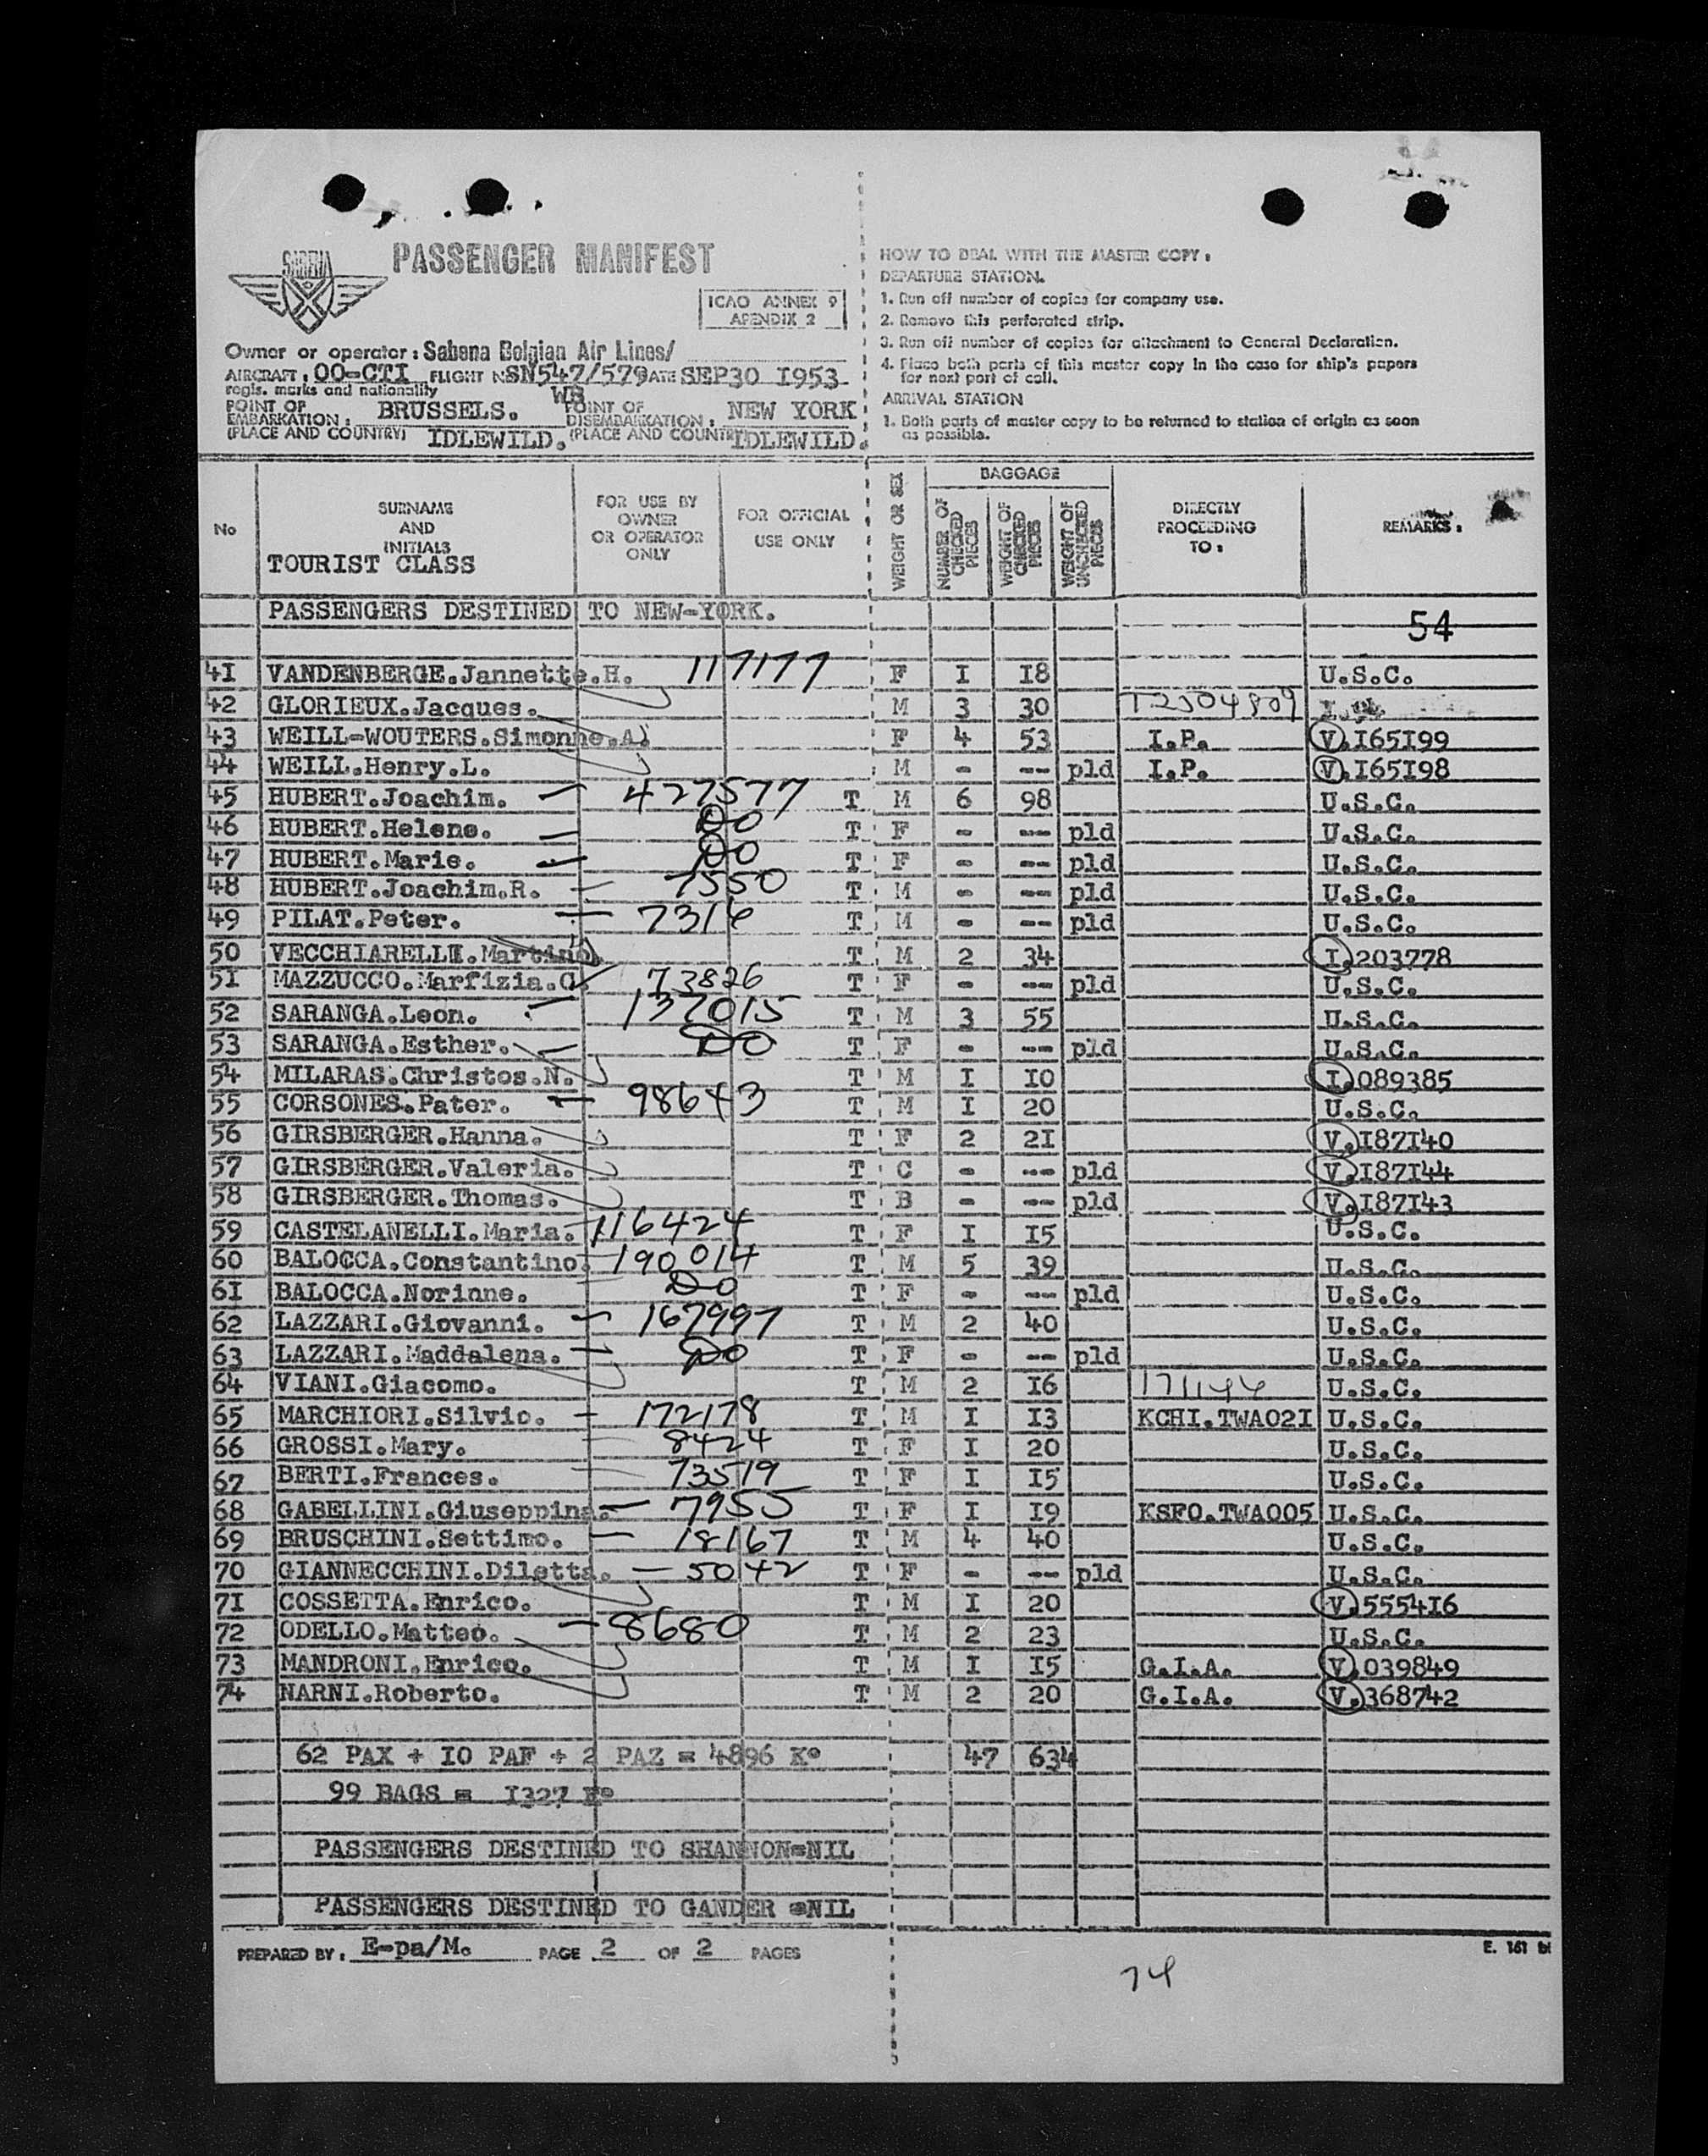 SABENA
PASSENGER MANIFEST
ICAO ANNEX 9
APENDIX 2
Owner or operator : Sabena Belgian Air Lines/
AIRCRAFT : OO-CTI FLIGHT N SN547/579 ATE SEP30 I953
regis. marks and nationality WB
POINT OF EMBARKATION : BRUSSELS. POINT OF DISEMBARKATION : NEW YORK
(PLACE AND COUNTRY) IDLEWILD. (PLACE AND COUNTR IDLEWILD.
HOW TO DEAL WITH THE MASTER COPY :
DEPARTURE STATION.
1. Run off number of copies for company use.
2. Remove this perforated strip.
3. Run off number of copies for attachment to General Declaration.
4. Place both parts of this master copy in the case for ship's papers
for next port of call.
ARRIVAL STATION
1. Both parts of master copy to be returned to station of origin as soon
as possible.
No SURNAME AND INITIALS FOR USE BY OWNER OR OPERATOR ONLY FOR OFFICIAL USE ONLY WEIGHT OR SEX BAGGAGE NUMBER OF CHECKED PIECES WEIGHT OF CHECKED PIECES WEIGHT OF UNCHECKED PIECES DIRECTLY PROCEEDING TO : REMARKS :
TOURIST CLASS
PASSENGERS DESTINED TO NEW-YORK.
54
4I VANDENBERGE.Jannette.H. 117177 F I I8 U.S.C.
42 GLORIEUX.Jacques. M 3 30 T2504809 I.
43 WEILL-WOUTERS.Simonne.A. F 4 53 I.P. V.I65I99
44 WEILL.Henry.L. M - --- pld I.P. V.I65I98
45 HUBERT.Joachim. 427577 T M 6 98 U.S.C.
46 HUBERT.Helene. DO T F - --- pld U.S.C.
47 HUBERT.Marie. DO T F - --- pld U.S.C.
48 HUBERT.Joachim.R. 7550 T M - --- pld U.S.C.
49 PILAT.Peter. 7316 T M - --- pld U.S.C.
50 VECCHIARELLI.Martino. T M 2 34 I.203778
5I MAZZUCCO.Marfizia.C. 73826 T F - --- pld U.S.C.
52 SARANGA.Leon. 137015 T M 3 55 U.S.C.
53 SARANGA.Esther. DO T F - --- pld U.S.C.
54 MILARAS.Christos.N. T M I I0 I.089385
55 CORSONES.Pater. 98643 T M I 20 U.S.C.
56 GIRSBERGER.Hanna. T F 2 2I V.I87I40
57 GIRSBERGER.Valeria. T C - --- pld V.I87I44
58 GIRSBERGER.Thomas. T B - --- pld V.I87I43
59 CASTELANELLI.Maria. 116424 T F I I5 U.S.C.
60 BALOCCA.Constantino. 190014 T M 5 39 U.S.C.
6I BALOCCA.Norinne. DO T F - --- pld U.S.C.
62 LAZZARI.Giovanni. 167997 T M 2 40 U.S.C.
63 LAZZARI.Maddalena. DO T F - --- pld U.S.C.
64 VIANI.Giacomo. T M 2 I6 171144 U.S.C.
65 MARCHIORI.Silvio. 172178 T M I I3 KCHI.TWA02I U.S.C.
66 GROSSI.Mary. 8424 T F I 20 U.S.C.
67 BERTI.Frances. 73519 T F I I5 U.S.C.
68 GABELLINI.Giuseppina. 7955 T F I I9 KSFO.TWA005 U.S.C.
69 BRUSCHINI.Settimo. 18167 T M 4 40 U.S.C.
70 GIANNECCHINI.Diletta. 5042 T F - --- pld U.S.C.
7I COSSETTA.Enrico. T M I 20 V.5554I6
72 ODELLO.Matteo. 8680 T M 2 23 U.S.C.
73 MANDRONI.Enrico. T M I I5 G.I.A. V.039849
74 NARNI.Roberto. T M 2 20 G.I.A. V.368742
62 PAX + I0 PAF + 2 PAZ = 4896 K° 47 634
99 BAGS = I327 K°
PASSENGERS DESTINED TO SHANNON=NIL
PASSENGERS DESTINED TO GANDER =NIL
PREPARED BY : E-pa/M. PAGE 2 OF 2 PAGES
E. 161 bi
74